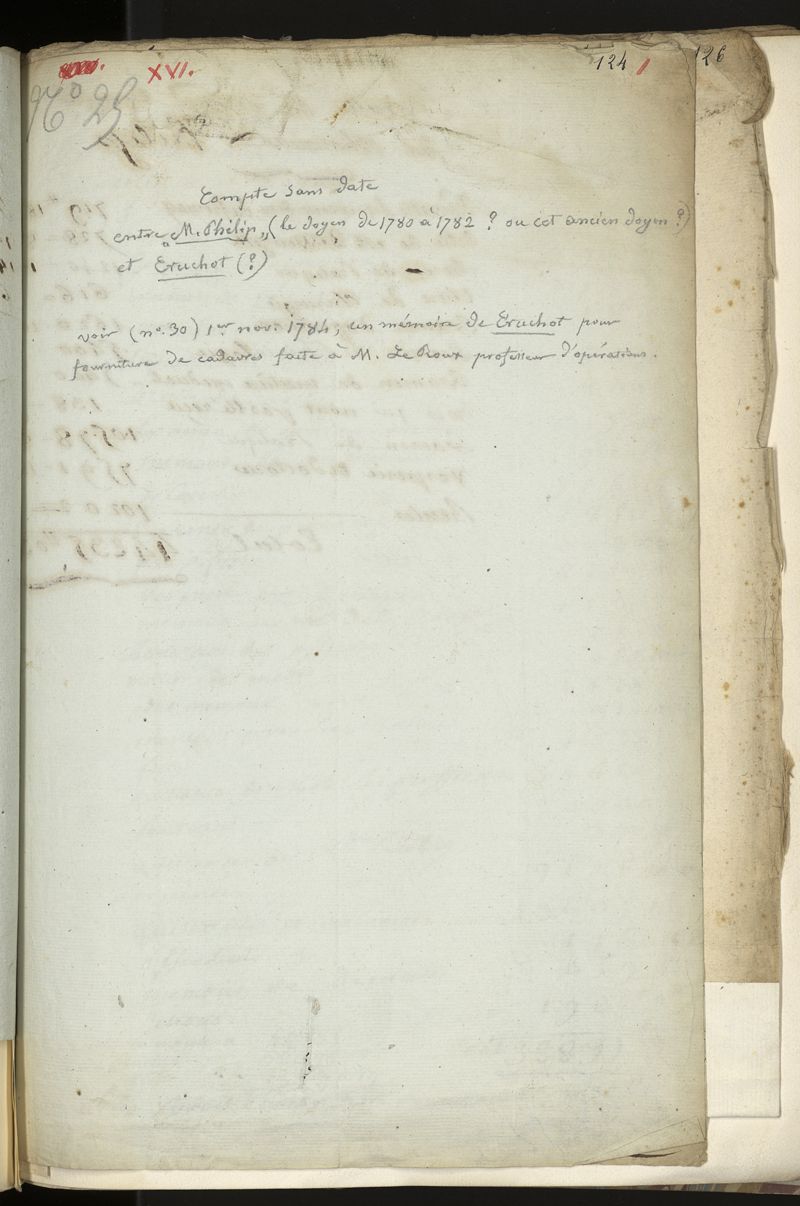 XVI.
124
126
No 29
Compte sans date
entre M. Philip, (le doyen de 1780 à 1782 ? ou cet ancien doyen ?)
et Eruchot (?)
voir (no. 30) 1er nov. 1784, un mémoire de Eruchot pour
fourniture de cadavres faite à M. Le Roux professeur d'opérations.